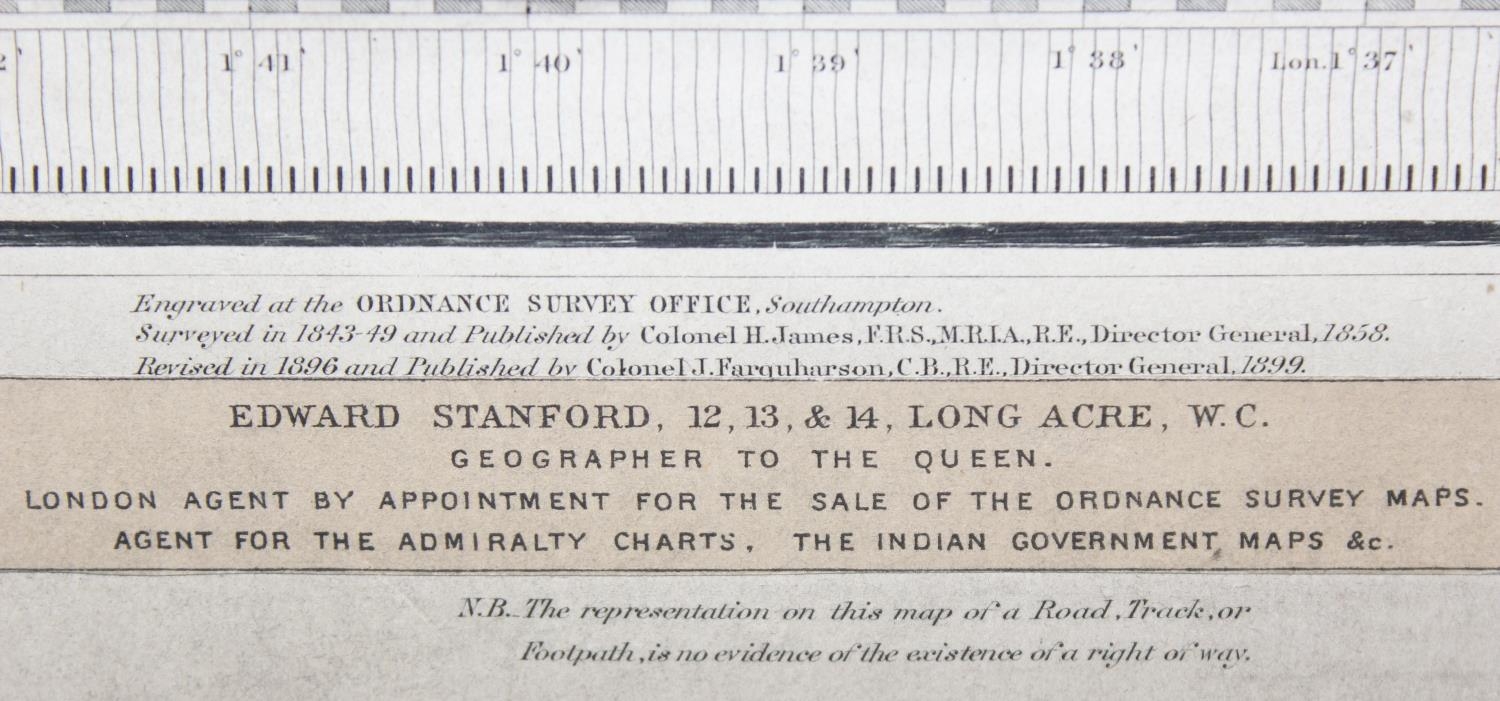 2' 1° 41' 1° 40' 1° 39' 1° 38' Lon. 1° 37'
Engraved at the ORDNANCE SURVEY OFFICE, Southampton.
Surveyed in 1843-49 and Published by Colonel H. James, F.R.S., M.R.I.A., R.E., Director General, 1858.
Revised in 1896 and Published by Colonel J. Farquharson, C.B., R.E., Director General, 1899.
EDWARD STANFORD, 12, 13, & 14, LONG ACRE, W.C.
GEOGRAPHER TO THE QUEEN.
LONDON AGENT BY APPOINTMENT FOR THE SALE OF THE ORDNANCE SURVEY MAPS.
AGENT FOR THE ADMIRALTY CHARTS, THE INDIAN GOVERNMENT MAPS &c.
N.B._The representation on this map of a Road, Track, or
Footpath, is no evidence of the existence of a right of way.